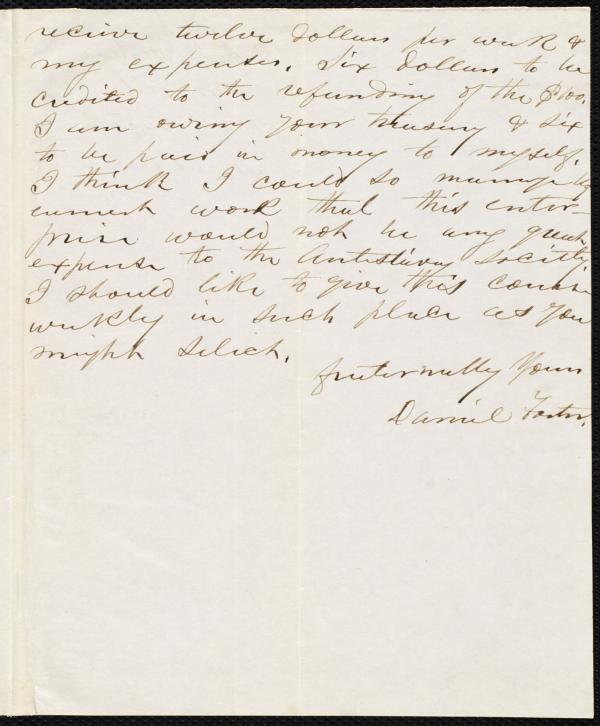 receive twelve dollars per week &
my expenses. Six dollars to be
credited to the refunding of the $100.
I am owing your treasury & six
to be paid in money to myself.
I think I could so manage by
earnest work that this enter-
prise would not be any great
expense to the Antislavery Society.
I should like to give this course
weekly in such place as you
might select.
fraternally Yours
Daniel Foster.